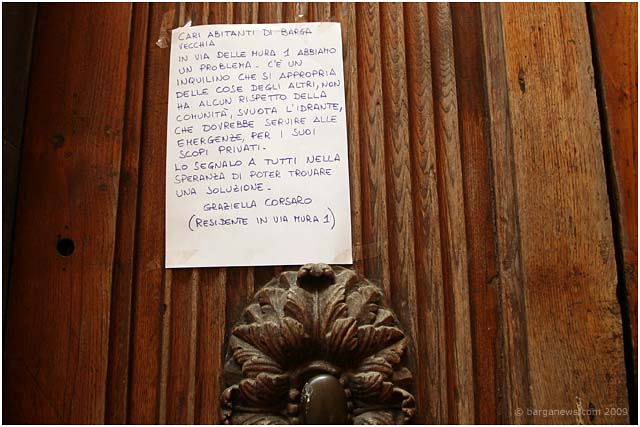 CARI ABITANTI DI BARGA
VECCHIA
IN VIA DELLE MURA 1 ABBIAMO
UN PROBLEMA - C'È UN
INQUILINO CHE SI APPROPRIA
DELLE COSE DEGLI ALTRI, NON
HA ALCUN RISPETTO DELLA
COMUNITÀ, SVUOTA L'IDRANTE,
CHE DOVREBBE SERVIRE ALLE
EMERGENZE, PER I SUOI
SCOPI PRIVATI -
LO SEGNALO A TUTTI NELLA
SPERANZA DI POTER TROVARE
UNA SOLUZIONE -
GRAZIELLA CORSARO
(RESIDENTE IN VIA MURA 1)
© barganews.com 2009